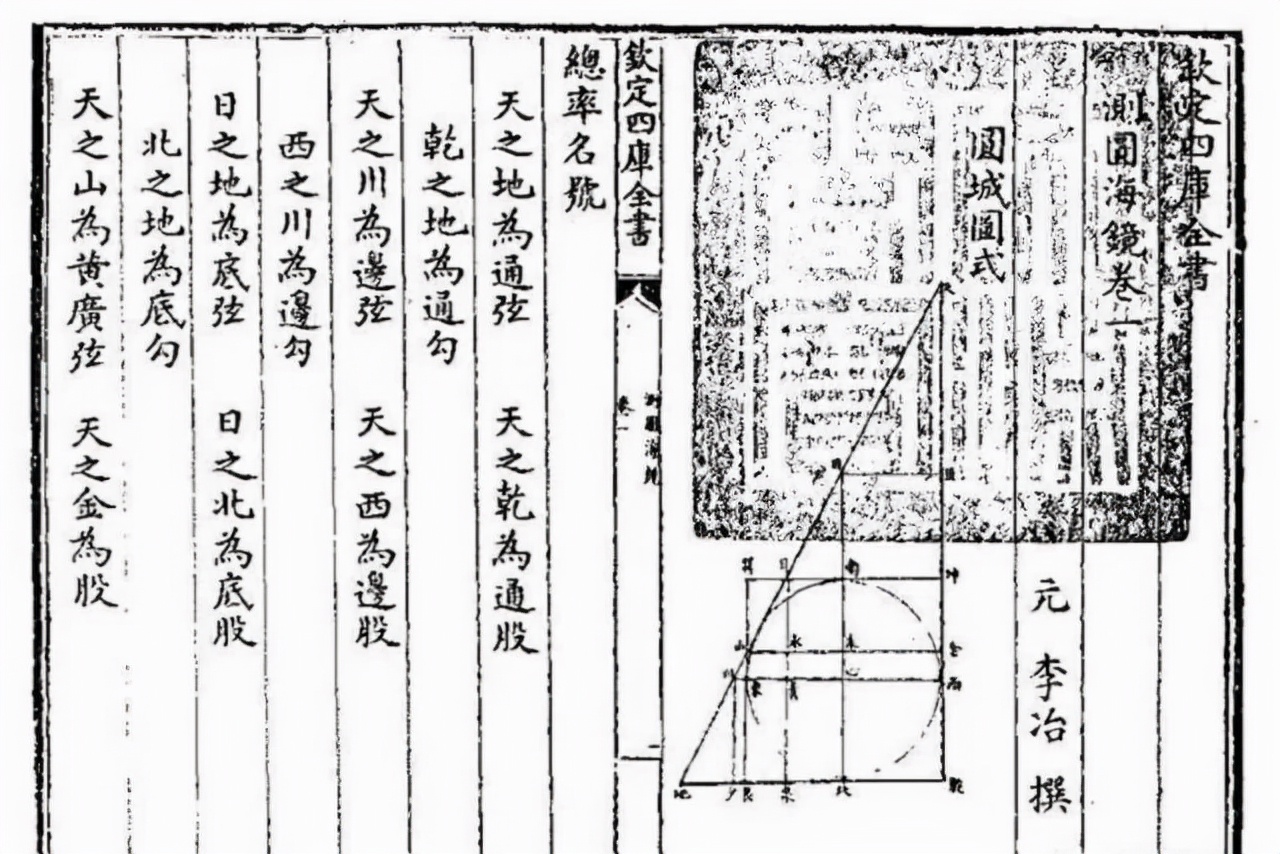 欽定四庫全書
測圓海鏡卷一
元 李冶 撰
圓城圖式
日
南
坤
山
金
川
心
西
地
北
乾
欽定四庫全書
測圓海鏡
卷一
總率名號
天之地為通弦 天之乾為通股
乾之地為通勾
天之川為邊弦 天之西為邊股
西之川為邊勾
日之地為底弦 日之北為底股
北之地為底勾
天之山為黄廣弦 天之金為股